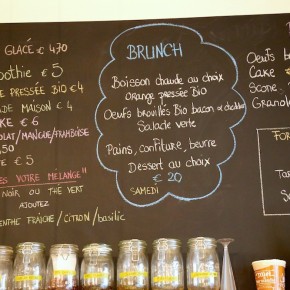 GLACÉ € 4,70
oothie € 5
E PRESSÉE BIO €4
ADE MAISON € 4
KE € 6
OLAT/MANGUE/FRAMBOISE
,50
€ 5
ES VOTRE MÉLANGE"
NOIR OU THÉ VERT
AJOUTEZ
ENTHE FRAÎCHE/CITRON/basilic
BRUNCH
Boisson chaude au choix
Orange pressée Bio
Oeufs brouillés Bio bacon ou cheddar
Salade verte
Pains, confiture, beurre
Dessert au choix
€ 20
SAMEDI
Oeufs b
Cake
Scone
Granol
FOR
Ta
Sa